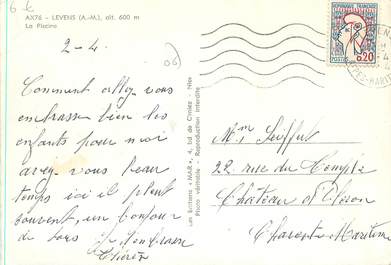 6 €
AX76 - LEVENS (A.-M.), alt. 600 m
La Piscine
2-4
06
Comment allez-vous
embrasse bien les
enfants pour moi
avez-vous beau
temps ici il pleut
souvent, un bonjour
de tous je t'embrasse
Les Editions "MAR", 4, bd de Cimiez - Nice
Photo véritable - Reproduction interdite
REPUBLIQUE FRANÇAISE
POSTES
0,20
Mme
22 rue du Temple
Château d'Oléron
Charente Maritime